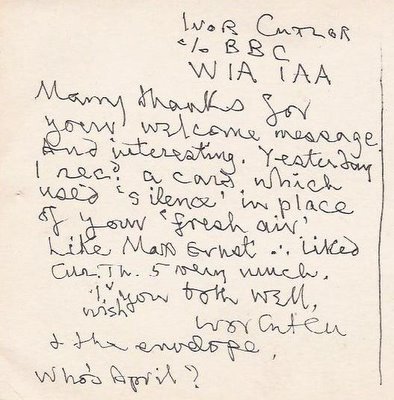 IVOR CUTLER
c/o BBC
W1A 1AA
Many thanks for
your welcome message.
And interesting. Yesterday
I rec'd a card which
used 'silence' in place
of your 'fresh air'
Like Max Ernst ∴ liked
Th. 5 very much.
I wish you both well,
Ivor Cutler
& the envelope,
Who's April?